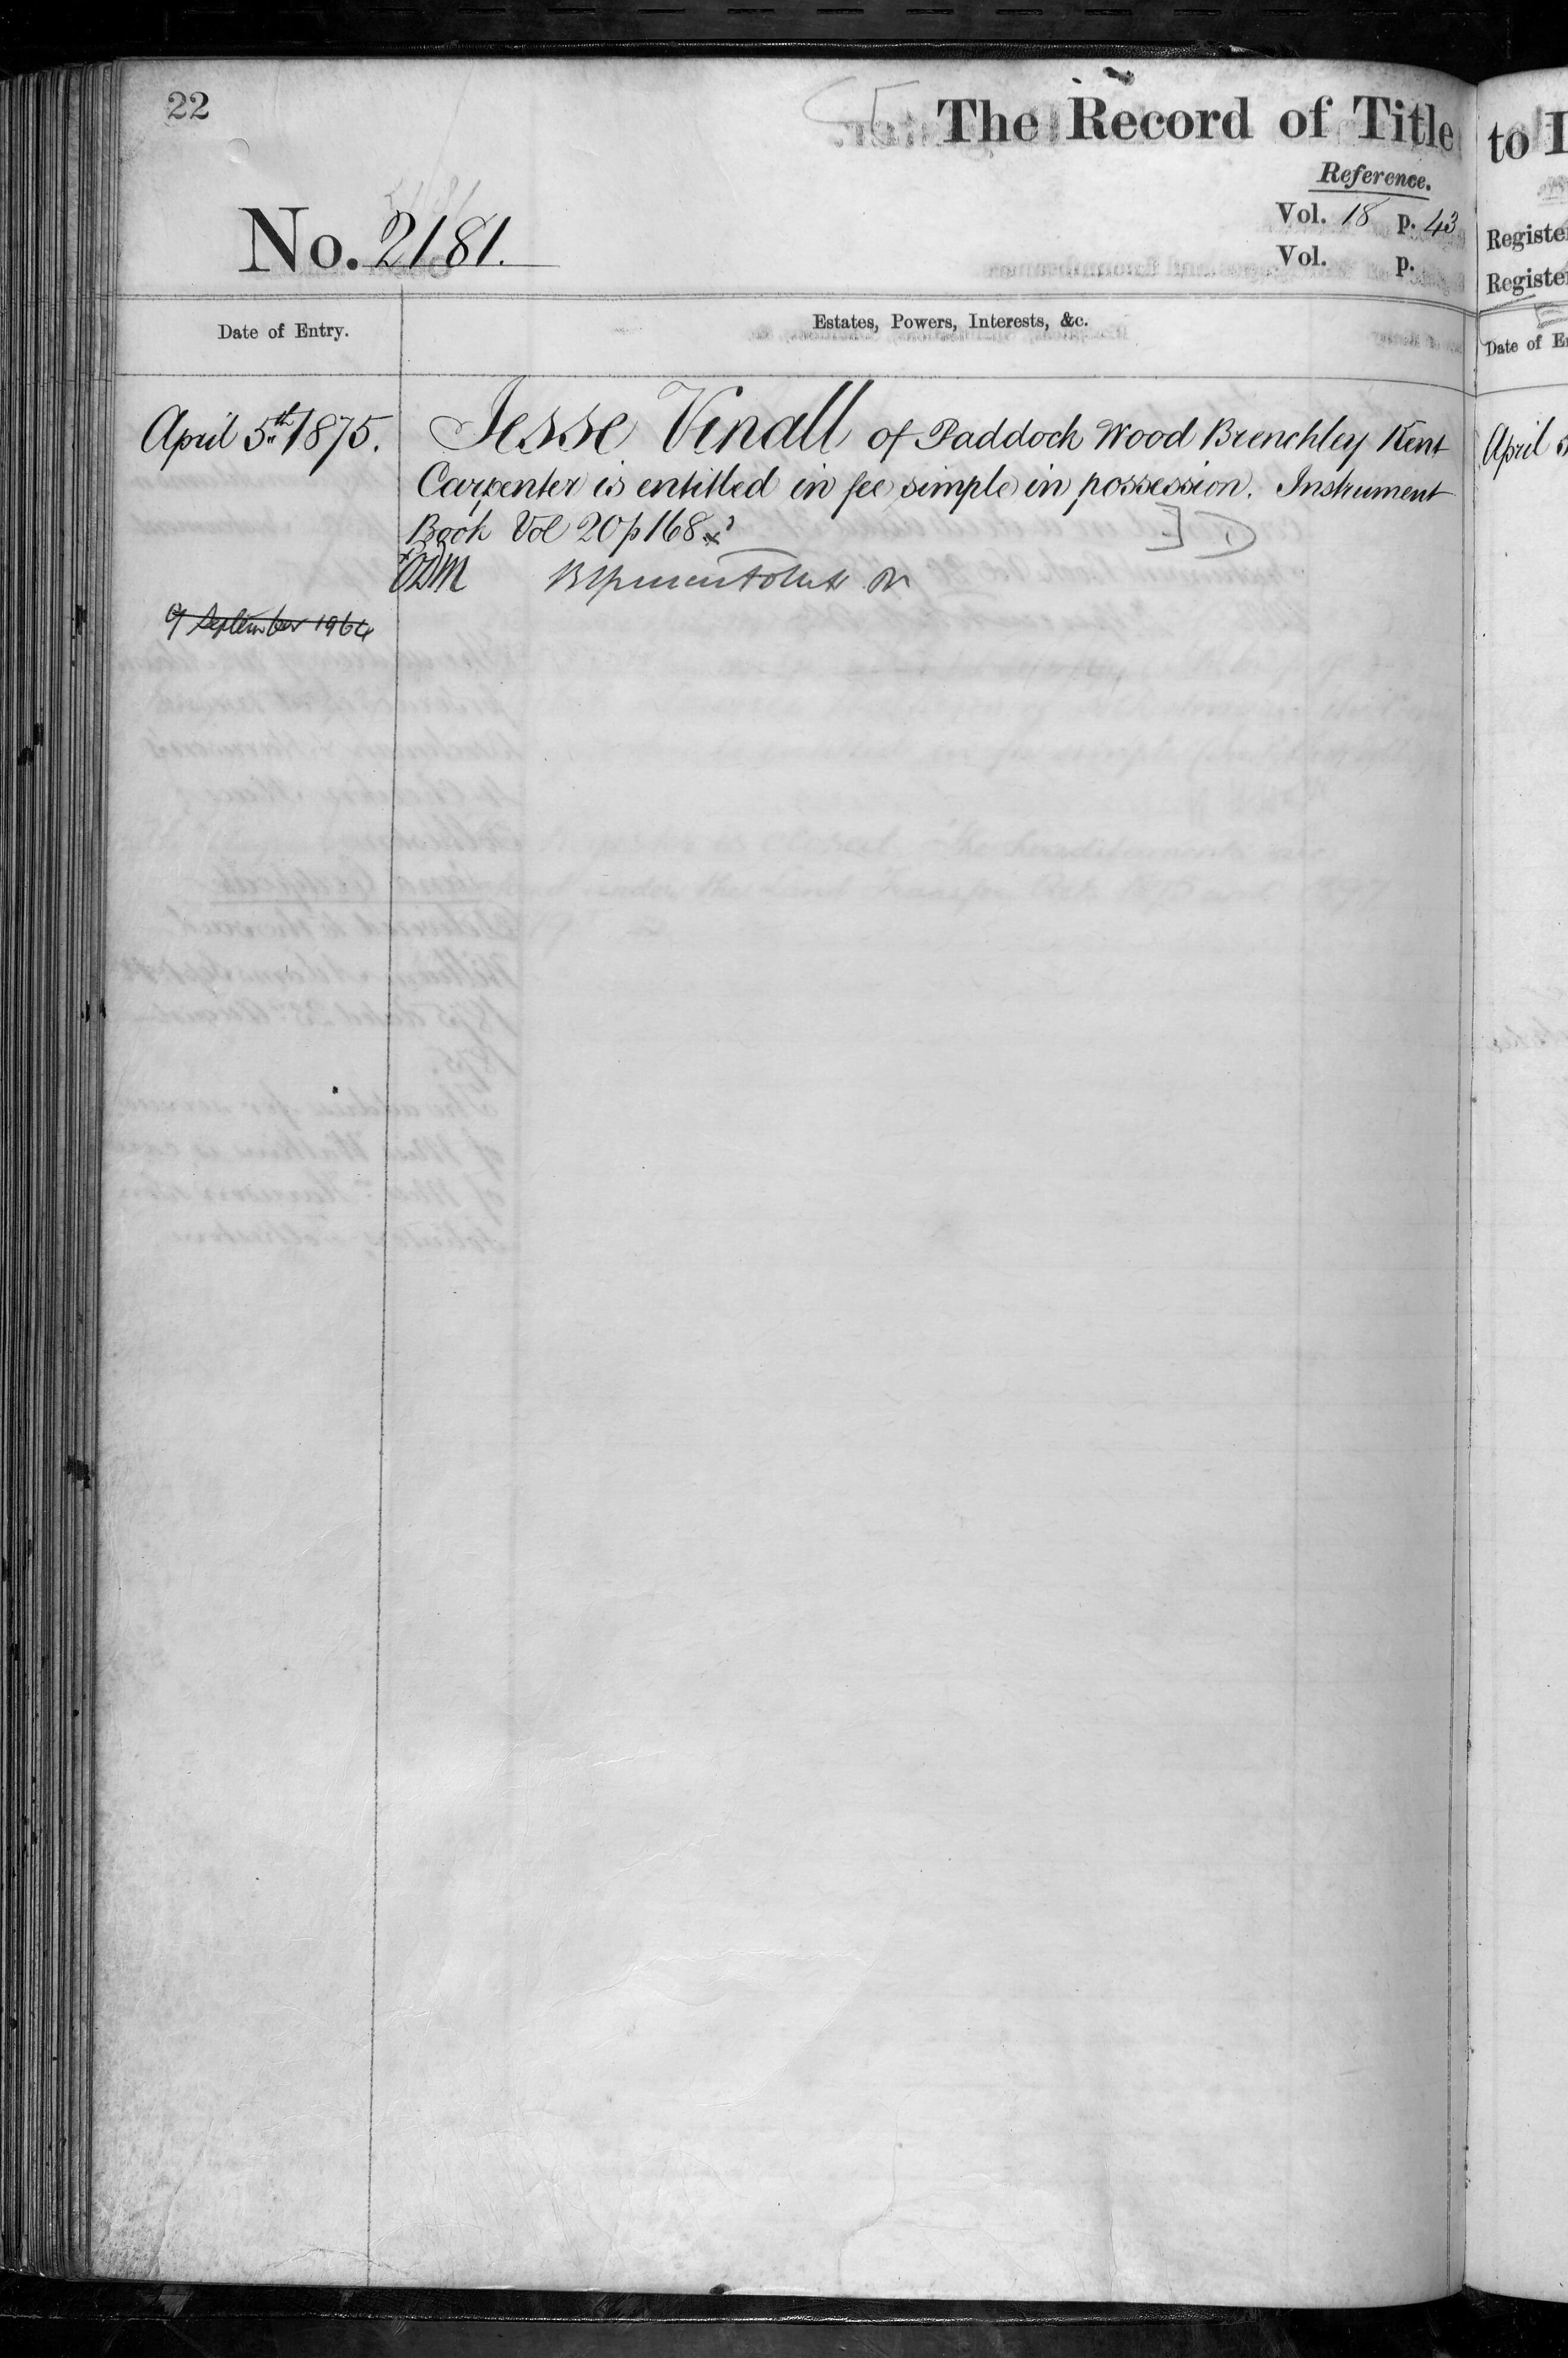 22
The Record of Title
Reference.
Vol. 18 p. 43
Vol. p.
No. 2181.
Date of Entry.
Estates, Powers, Interests, &c.
April 5th 1875.
Jesse Vinall of Paddock Wood Brenchley Kent
Carpenter is entitled in fee simple in possession. Instrument
Book Vol 20 p 168
9 September 1964
to
Registe
Registe
Date of E
April 5